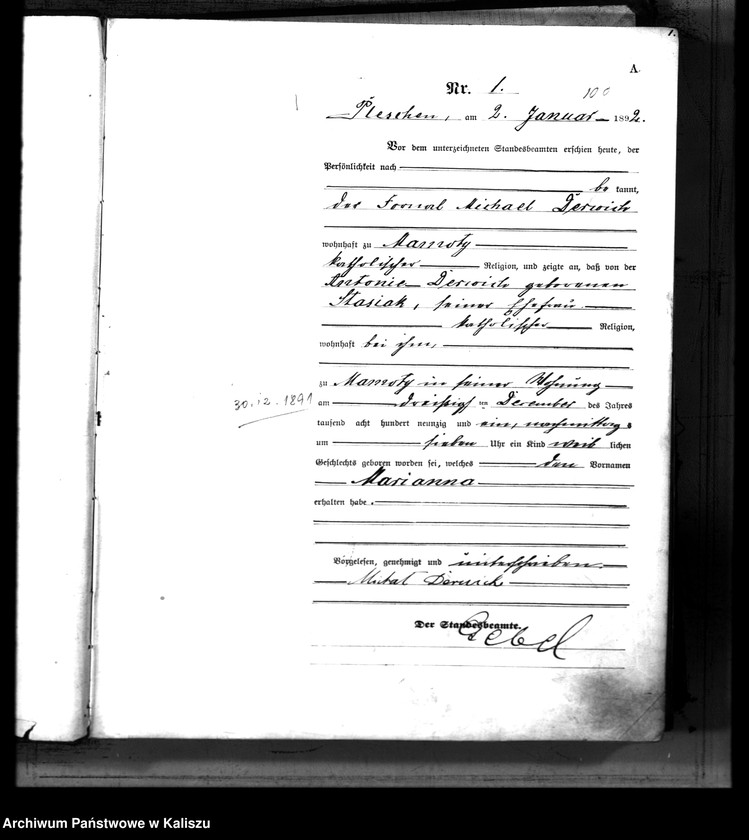 1.
A.
Nr. 1.
100
Pleschen, am 2. Januar 1892.
Vor dem unterzeichneten Standesbeamten erschien heute, der
Persönlichkeit nach
be kannt,
der Fornal Michael Derwich
wohnhaft zu Mamoty
katholischer Religion, und zeigte an, daß von der
Antonie Derwich geborenen
Stasiak, seiner Ehefrau
katholischer Religion,
wohnhaft bei ihm,
zu Mamoty in seiner Wohnung
30.12.1891
am dreißigsten December des Jahres
tausend acht hundert neunzig und ein, nachmittags
um sieben Uhr ein Kind weiblichen
Geschlechts geboren worden sei, welches den Vornamen
Marianna
erhalten habe.
Vorgelesen, genehmigt und unterschrieben
Michał Derwich
Der Standesbeamte.
Gebel
Archiwum Państwowe w Kaliszu